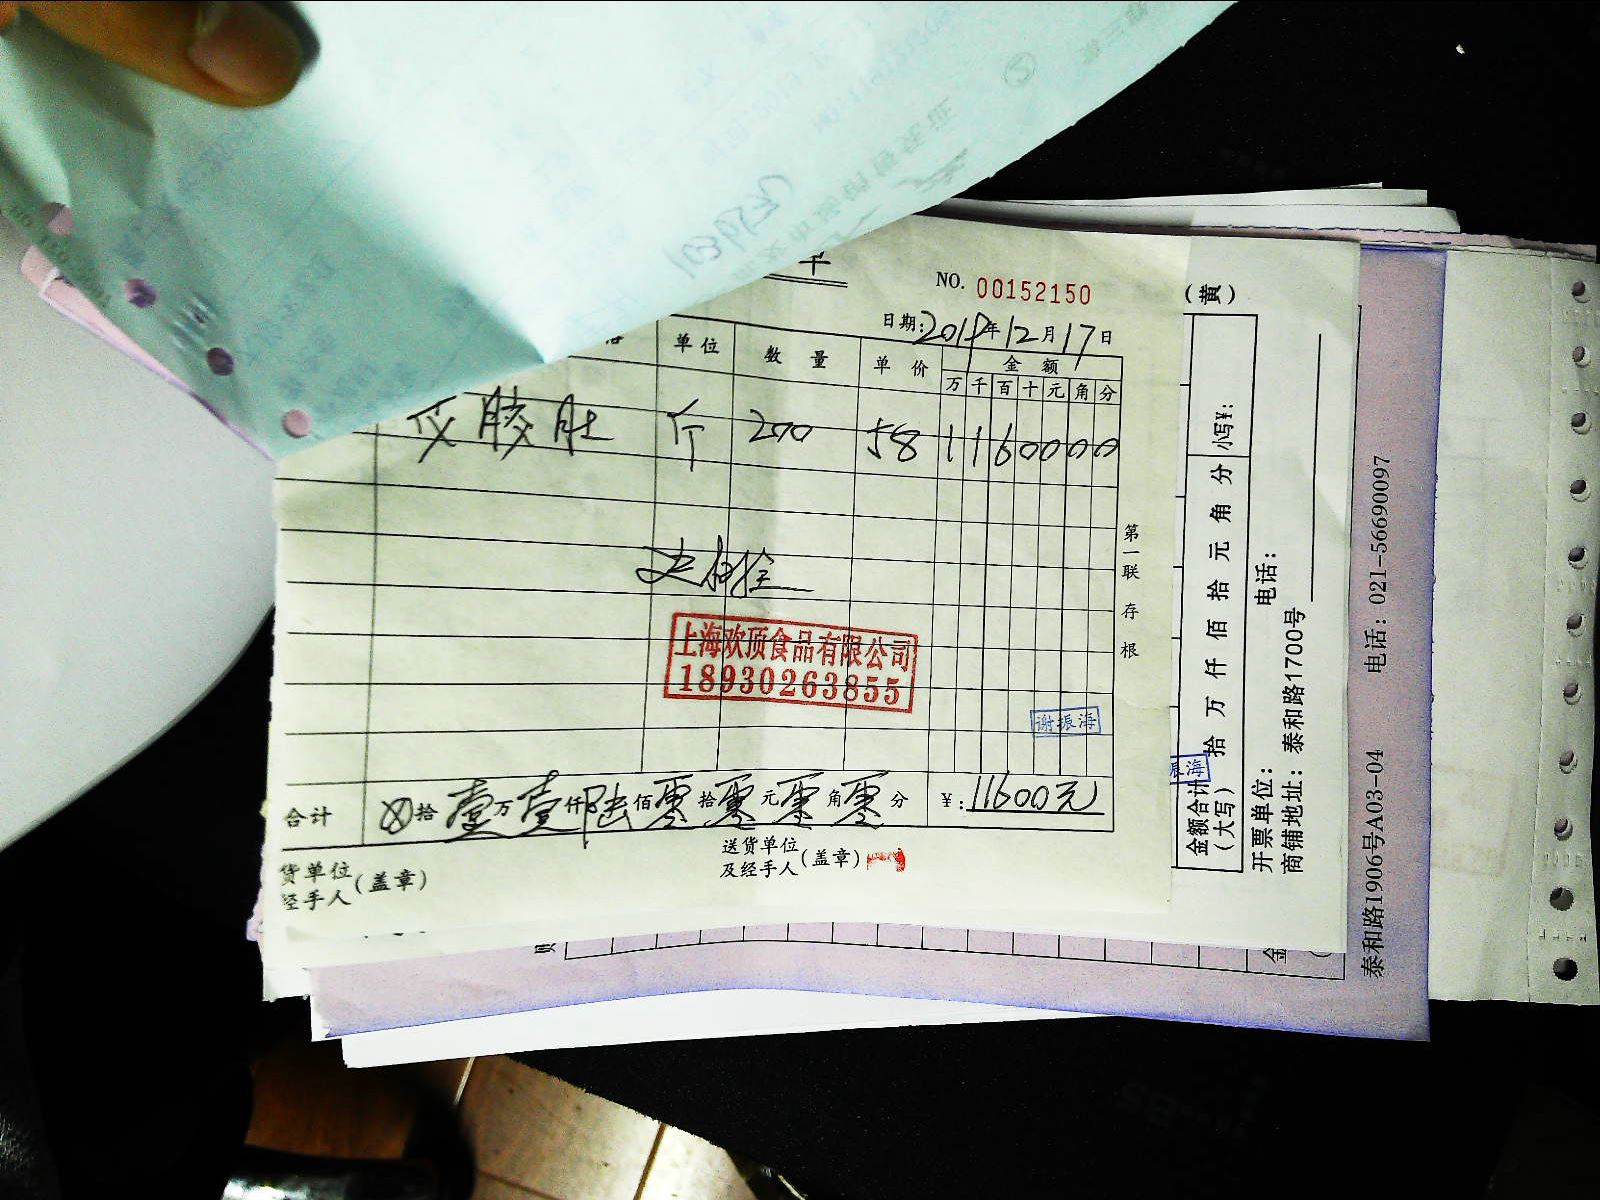 NO. 00152150
日期: 2019年12月17日
单位 数量 单价 金额
万 千 百 十 元 角 分
胶肚 斤 200 58 1 1 6 0 0 0 0
第一联 存根
上海欢顶食品有限公司
18930263855
谢振海
合计 ⊗拾壹万壹仟陆佰零拾零元零角零分 ¥: 11600元
货单位
经手人 (盖章)
送货单位
及经手人 (盖章)
(黄)
小写¥:
金额合计 拾 万 仟 佰 拾 元 角 分
(大写)
振海
开票单位:
电话:
商铺地址: 泰和路1700号
泰和路1906号A03-04 电话: 021-56690097